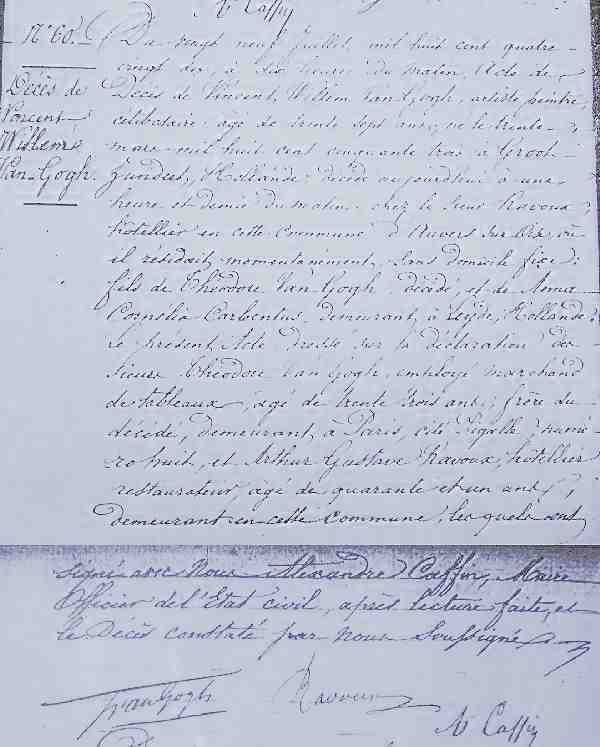 Al Caffin
N° 60.
Décès de
Vincent
Willem
Van-Gogh.
Du vingt neuf Juillet mil huit cent quatre-
vingt dix, à dix heures du matin, Acte de
Décès de Vincent, Willem Van Gogh, artiste peintre,
célibataire, âgé de trente sept ans, né le trente
mars mil huit cent cinquante trois à Groot-
Zundert, Hollande, décédé aujourd'hui à une
heure et demie du matin chez le Sieur Ravoux,
hôtellier en cette commune d'Auvers sur Oise, où
il résidait momentanément, sans domicile fixe;
fils de Théodore Van Gogh, décédé, et de Anna
Cornélia Carbentus, demeurant à Leyde, Hollande;
Le présent Acte dressé sur la déclaration des
Sieurs Théodore Van Gogh, employé marchand
de tableaux, âgé de trente trois ans, frère du
décédé, demeurant à Paris, cité Pigalle, numé-
ro huit, et Arthur Gustave Ravoux, hôtellier
restaurateur, âgé de quarante et un ans,
demeurant en cette commune, lesquels ont
signé avec Nous Alexandre Caffin, Maire
Officier de l'Etat civil, après lecture faite, et
le Décès constaté par Nous Soussigné
T van Gogh
Ravoux
Al Caffin